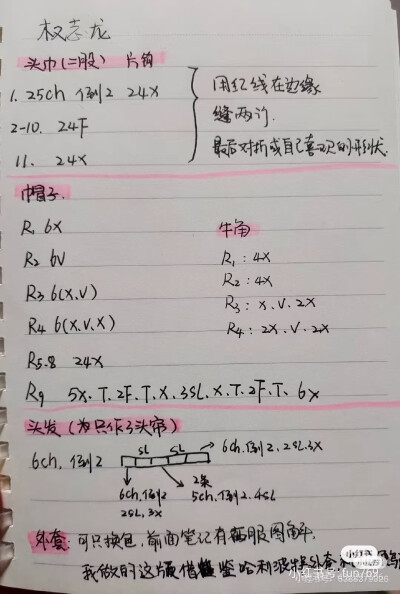 权志龙
头巾(二股) 片钩
1. 25ch 倒2 24X
2-10. 24F
11. 24X
用红线在边缘
缝两行.
最后对折成自己喜欢的形状.
帽子.
R1 6X
R2 6V
R3 6(X.V)
R4 6(X.V.X)
R5-8 24X
R9 5X.T.2F.T.X.3SL.X.T.2F.T.6X
牛角
R1: 4X
R2: 4X
R3: X.V.2X
R4: 2X.V.2X
头发(为只作了头帘)
6ch, 倒2
SL SL
6ch.倒2.2SL.3X
6ch.倒2
2SL.3X
2条
5ch.倒2.4SL
外套: 可只换色, 前面笔记有衣服图解.
我做的这版借鉴哈利波特外套
小红书
小红书号: 9566379926